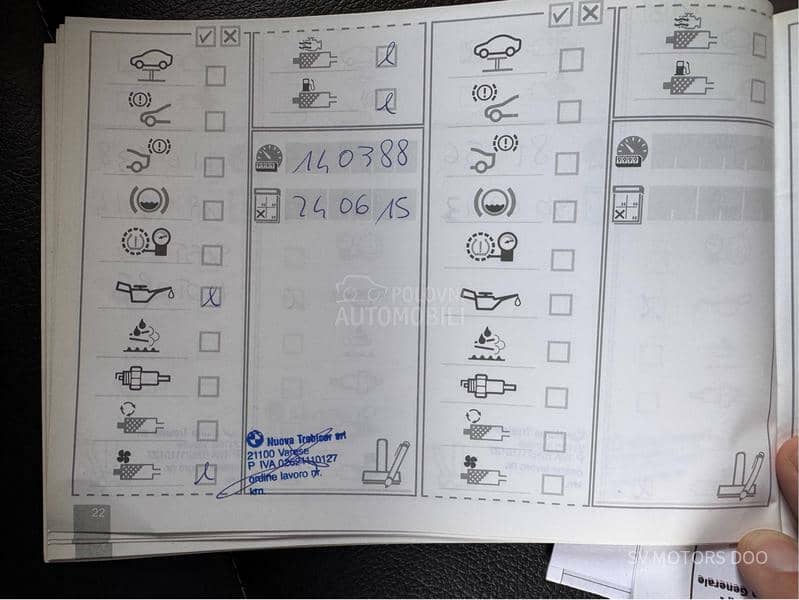 140388
24 06 15
POLOVNI
AUTOMOBILI
Nuova Trebicar srl
21100 Varese
P IVA 02621110127
ordine lavoro nr.
km.
22
SV MOTORS DOO
Generale